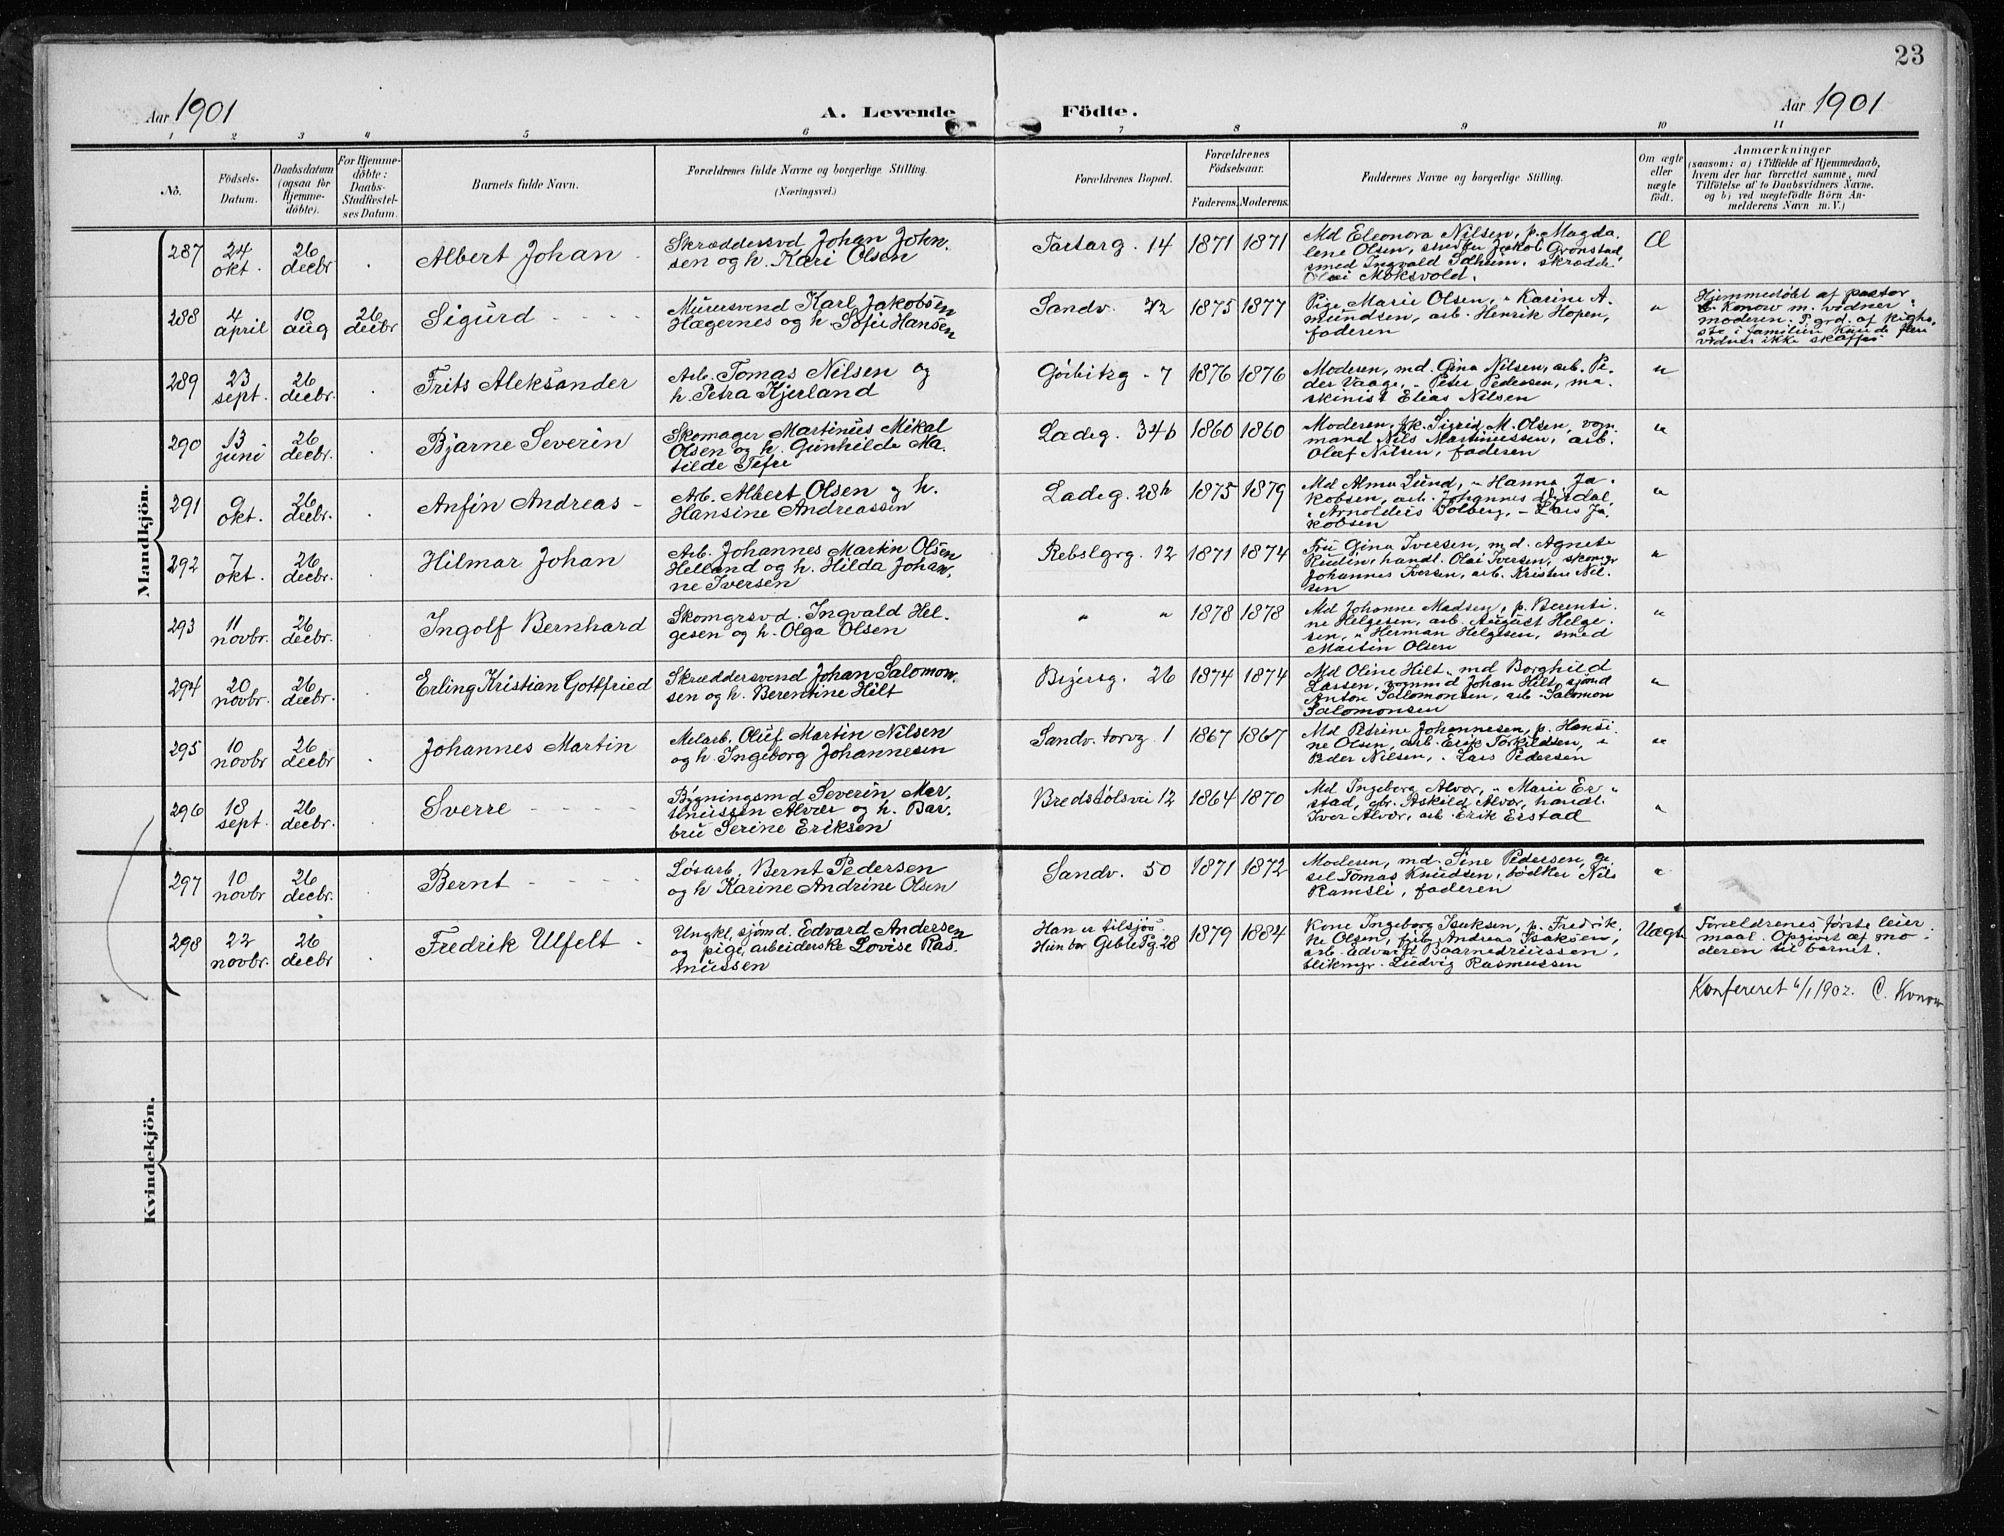 23
Aar 1901
A. Levende
Födte.
Aar 1901
1 2 3 4 5 6 7 8 9 10 11
No.
Födsels-
Datum.
Daabsdatum
(ogsaa for
Hjemme-
döbte).
For Hjemme-
döbte:
Daabs-
Stadfæstel-
ses Datum.
Barnets fulde Navn.
Forældrenes fulde Navne og borgerlige Stilling.
(Næringsvei.)
Forældrenes Bopæl.
Forældrenes
Födselsaar.
Faderens. Moderens.
Faddernes Navne og borgerlige Stilling.
Om ægte
eller
uægte
födt.
Anmærkninger
(saasom: a) i Tilfælde af Hjemmedaab,
hvem der har forrettet samme, med
Tilföielse af to Daabsvidners Navne.
og b) ved uægtefödte Börn An-
melderens Navn m. V.)
Mandkjön.
287
24
okt.
26
decbr
Albert Johan
Skræddersvd Johan John-
sen og h. Kari Olsen
Tartarg. 14
1871 1871
Md Eleonora Nilsen, p. Magda
lene Olsen, Jakob Grønstad,
smed Ingvald Solheim, skrædder
Olai Moksvold.
Æ
288
4
april
10
aug
26
decbr
Sigurd
Murersvend Karl Jakobsen
Hagernes og h. Sofie Hansen
Sandv. 72
1875 1877
Pige Marie Olsen, " Karine A-
mundsen, arb. Henrik Hopen,
faderen
"
Hjemmedøbt af pastor
C. Konow m. vidner
moderen. P. grd. af kigho-
ste i familien kunde flere
vidner ikke skaffes
289
23
sept.
26
decbr.
Frits Aleksander
Arb. Tomas Nilsen og
h. Petra Kjerland
Gørbitzg 7
1876 1876
Moderen, md. Gina Nilsen, arb. Pe-
der Vaage, " Peter Pedersen, ma-
skinist Elias Nilsen
"
290
13
juni
26
decbr.
Bjarne Severin
Skomager Martinus Mikal
Olsen og h. Gunhilde Ma-
tilde Tefre
Ladeg. 34b
1860 1860
Moderen, fk. Sigrid M. Olsen, vogn-
mand Nils Martinussen, arb.
Olaf Nilsen, faderen
"
291
9
okt.
26
decbr.
Anfin Andreas
Arb. Albert Olsen og h.
Hansine Andreassen
Ladeg. 28h
1875 1879
Md Alma Lund, " Hanna Ja-
kobsen, arb. Johannes
" Arnoldus Solberg, " Lars Ja-
kobsen
"
292
7
okt.
26
decbr.
Hilmar Johan
Arb. Johannes Martin Olsen
Helland og h. Hilda Johan-
ne Iversen
Rebslgrg. 12
1871 1874
Fru Gina Iversen, md. Agnete
Rudin, handl. Olai Iversen, skomgr
Johannes Iversen, arb. Kristen Nil-
sen
"
293
11
novbr.
26
decbr.
Ingolf Bernhard
Skomgrsvd. Ingvald Hel-
gesen og h. Olga Olsen
" "
1878 1878
Md Johanne Madsen, p. Berenti-
ne Helgesen, arb. August Helge-
sen, " Herman Helgesen, smed
Martin Olsen
"
294
20
novbr.
26
decbr.
Erling Kristian Gottfried
Skræddersvend Johan Salomon-
sen og h. Berentine Hilt
Bøjersg. 26
1874 1874
Md Oline Hilt, md Borghild
Larsen, vognmd Johan Hilt, sjømd
Anton Salomonsen, arb. Salomon
Salomonsen
"
295
10
novbr
26
decbr
Johannes Martin
Melarb. Oluf Martin Nilsen
og h. Ingeborg Johannesen
Sandv. torvg 1
1867 1867
Md Petrine Johannesen, p. Hansi-
ne Olsen, arb. Erik Torkildsen, "
Peder Nilsen, " Lars Pedersen
"
296
18
sept.
26
decbr.
Sverre
Bygningsmd Severin Mar-
tinussen Alver og h. Bar-
bru Serine Eriksen
Bredstølsvei 12
1864 1870
Md Ingeborg Alvær, " Marie Er-
stad, gbr. Askild Alvær, handl.
Iver Alvær, arb. Erik Erstad
"
297
10
novbr
26
decbr.
Bernt
Løsarb. Bernt Pedersen
og h Karine Andrine Olsen
Sandv. 50
1871 1872
Moderen, md. Sine Pedersen, ge-
sel Tomas Knudsen, bødker Nils
Ramsli, faderen
"
298
22
novbr.
26
decbr
Fredrik Ulfelt
Ungkl, sjømd. Edvard Andersen
og pige, arbeiderske Lovise Ras-
mussen
Han er tilsjøs.
Hun bor Geblepg. 28
1879 1884
Kone Ingeborg Isaksen, p. Fredrik-
ke Olsen, Andreas Isaksen,
arb. Edvard Baarnedriussen,
blikmgr. Ludvig Rasmussen
Uægte
Forældrenes første leier-
maal. Opgivet af mo-
deren til barnet.
Konfereret 6/1 1902. C. Konow
Kvindekjön.